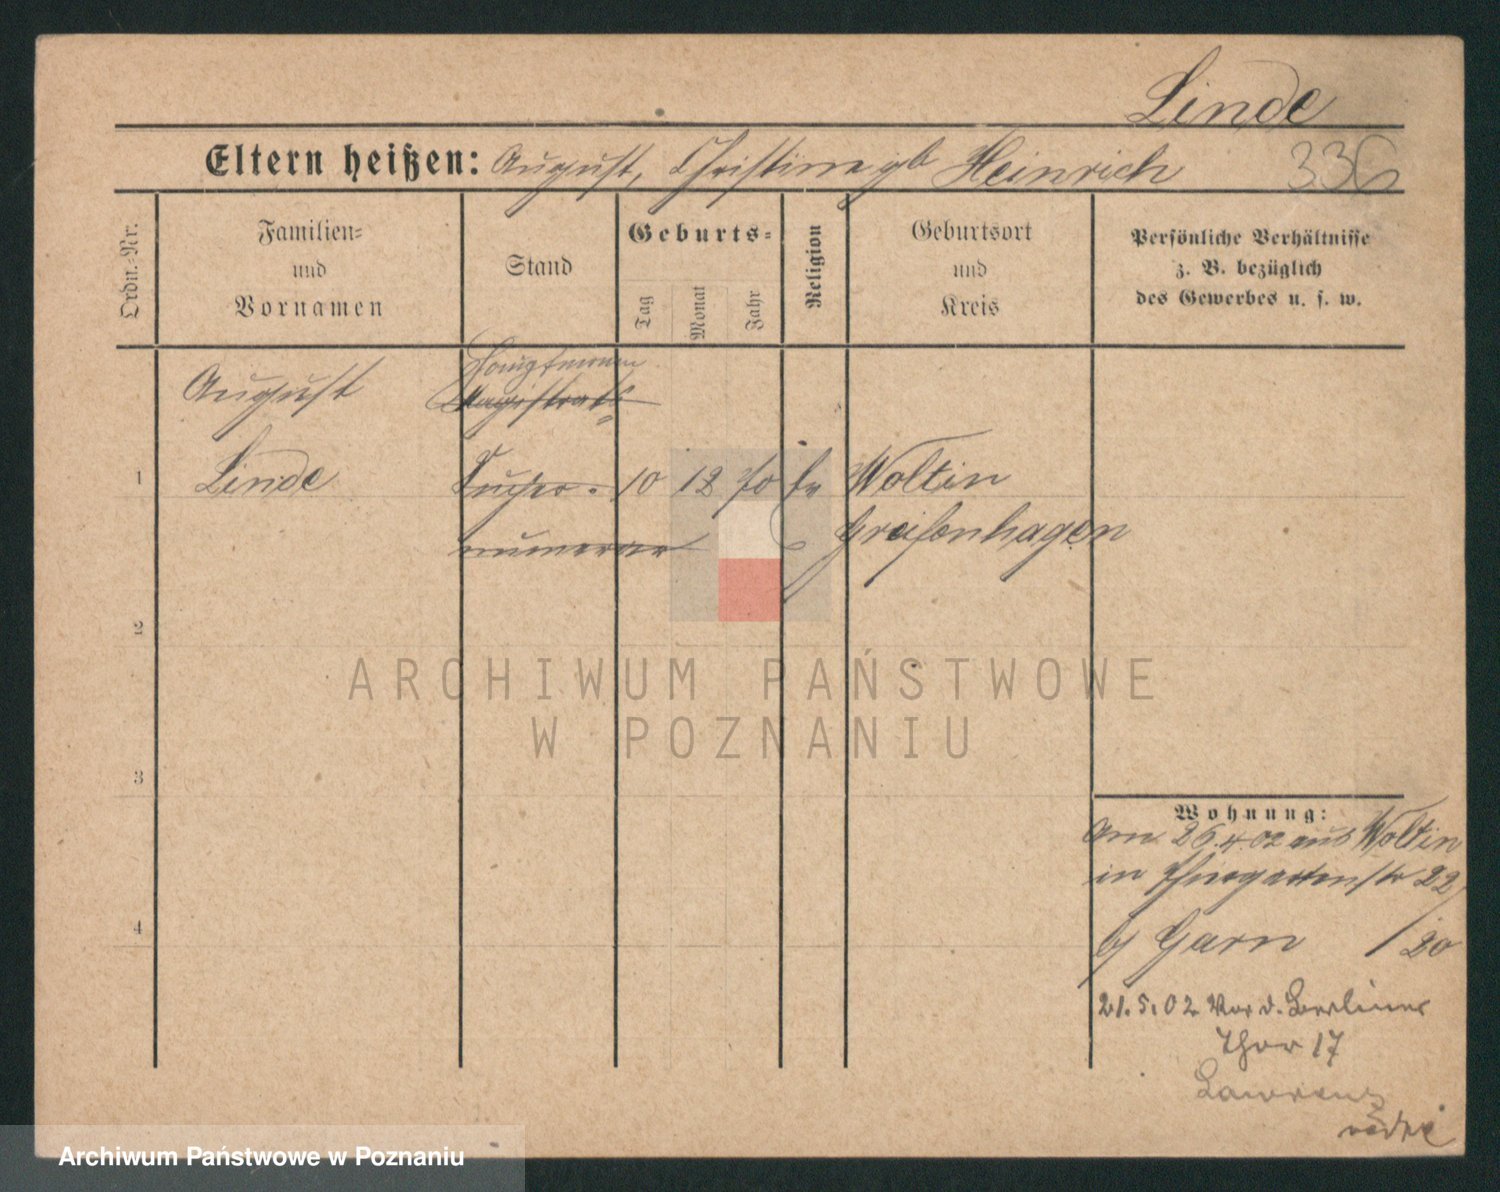 Linde
Eltern heißen: August, Christine gb Heinrich 336
Ordn.-Nr.
Familien-
und
Vornamen
Stand
Geburts-
Tag
Monat
Jahr
Religion
Geburtsort
und
Kreis
Persönliche Verhältnisse
z. B. bezüglich
des Gewerbes u. s. w.
August
Magistrats
1
Linde
Super-
10
12
70
Woltin
numerar
Greifenhagen
2
ARCHIWUM PAŃSTWOWE
W POZNANIU
3
Wohnung:
Am 26.4.02 aus Woltin
in Thiergartenstr 22,
b/ Garn /20
4
21.5.02 Vor d. Berliner
Thor 17
Lawrenz
Archiwum Państwowe w Poznaniu